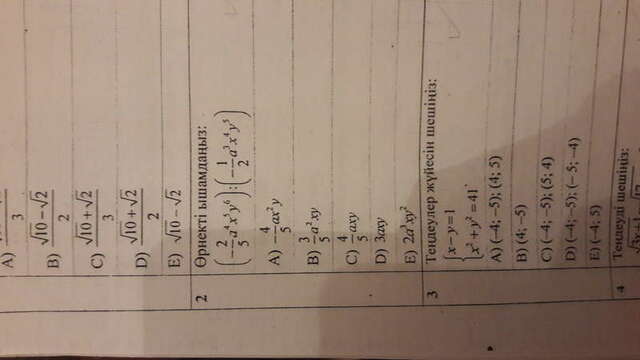 A) 3
B) (√10 − √2)/2
C) (√10 + √2)/3
D) (√10 + √2)/2
E) √10 − √2
2 Өрнекті ықшамдаңыз:
(−2/5 a⁴x⁵y⁶) : (−1/2 a³x⁴y⁵)
A) −4/5 ax²y
B) 3/5 a³xy
C) 4/5 axy
D) 3axy
E) 2a³xy²
3 Теңдеулер жүйесін шешіңіз:
{x − y = 1
x² + y² = 41
A) (−4; −5); (4; 5)
B) (4; −5)
C) (−4; −5); (5; 4)
D) (−4; −5); (−5; −4)
E) (−4; 5)
4 Теңдеуді шешіңіз: